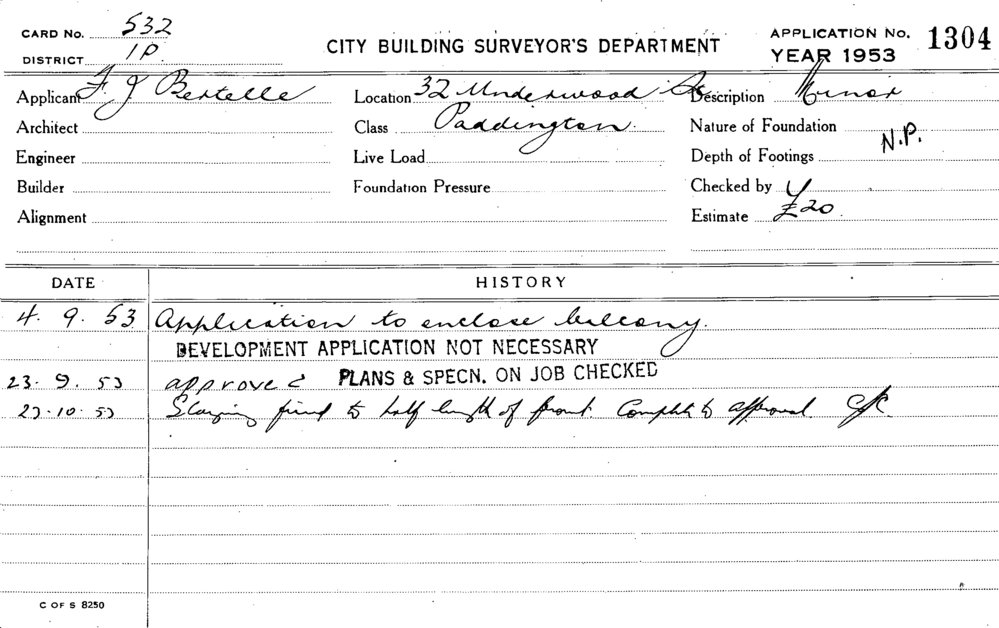 CARD No. 532
DISTRICT 1P.
CITY BUILDING SURVEYOR'S DEPARTMENT
APPLICATION No. 1304
YEAR 1953
Applicant F. J Bertelle Location 32 Underwood St Description Minor
Architect Class Paddington. Nature of Foundation N.P.
Engineer Live Load Depth of Footings
Builder Foundation Pressure Checked by
Alignment Estimate £20
DATE HISTORY
4. 9. 53 Application to enclose balcony.
DEVELOPMENT APPLICATION NOT NECESSARY
23. 9. 53 approved PLANS & SPECN. ON JOB CHECKED
10. 53 fixed to half length of front. Complete to approval
C OF S 8250